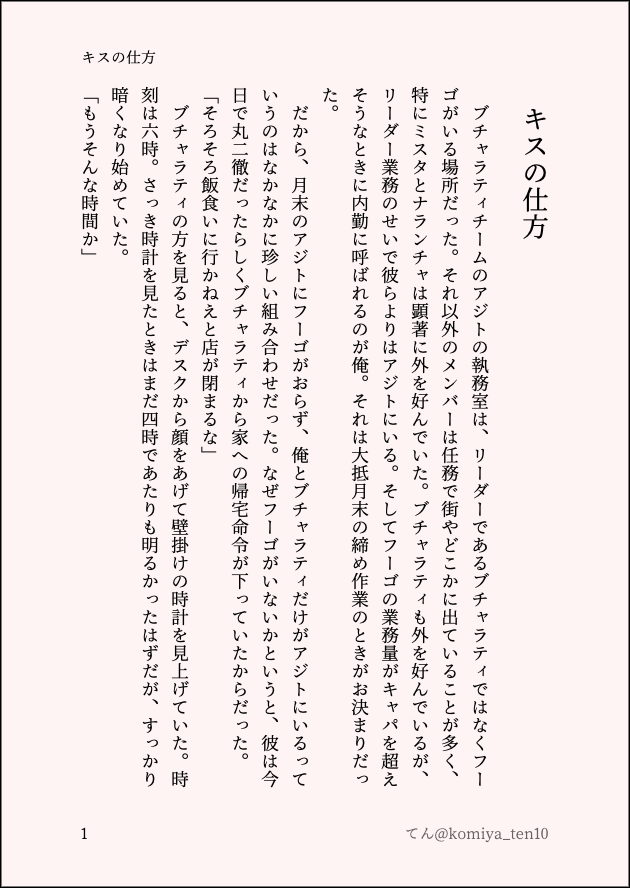 キスの仕方
キスの仕方
　ブチャラティチームのアジトの執務室は、リーダーであるブチャラティではなくフー
ゴがいる場所だった。それ以外のメンバーは任務で街やどこかに出ていることが多く、
特にミスタとナランチャは顕著に外を好んでいた。ブチャラティも外を好んでいるが、
リーダー業務のせいで彼らよりはアジトにいる。そしてフーゴの業務量がキャパを超え
そうなときに内勤に呼ばれるのが俺。それは大抵月末の締め作業のときがお決まりだっ
た。
　だから、月末のアジトにフーゴがおらず、俺とブチャラティだけがアジトにいるって
いうのはなかなかに珍しい組み合わせだった。なぜフーゴがいないかというと、彼は今
日で丸二徹だったらしくブチャラティから家への帰宅命令が下っていたからだった。
「そろそろ飯食いに行かねえと店が閉まるな」
　ブチャラティの方を見ると、デスクから顔をあげて壁掛けの時計を見上げていた。時
刻は六時。さっき時計を見たときはまだ四時であたりも明るかったはずだが、すっかり
暗くなり始めていた。
「もうそんな時間か」
1
てん@komiya_ten10